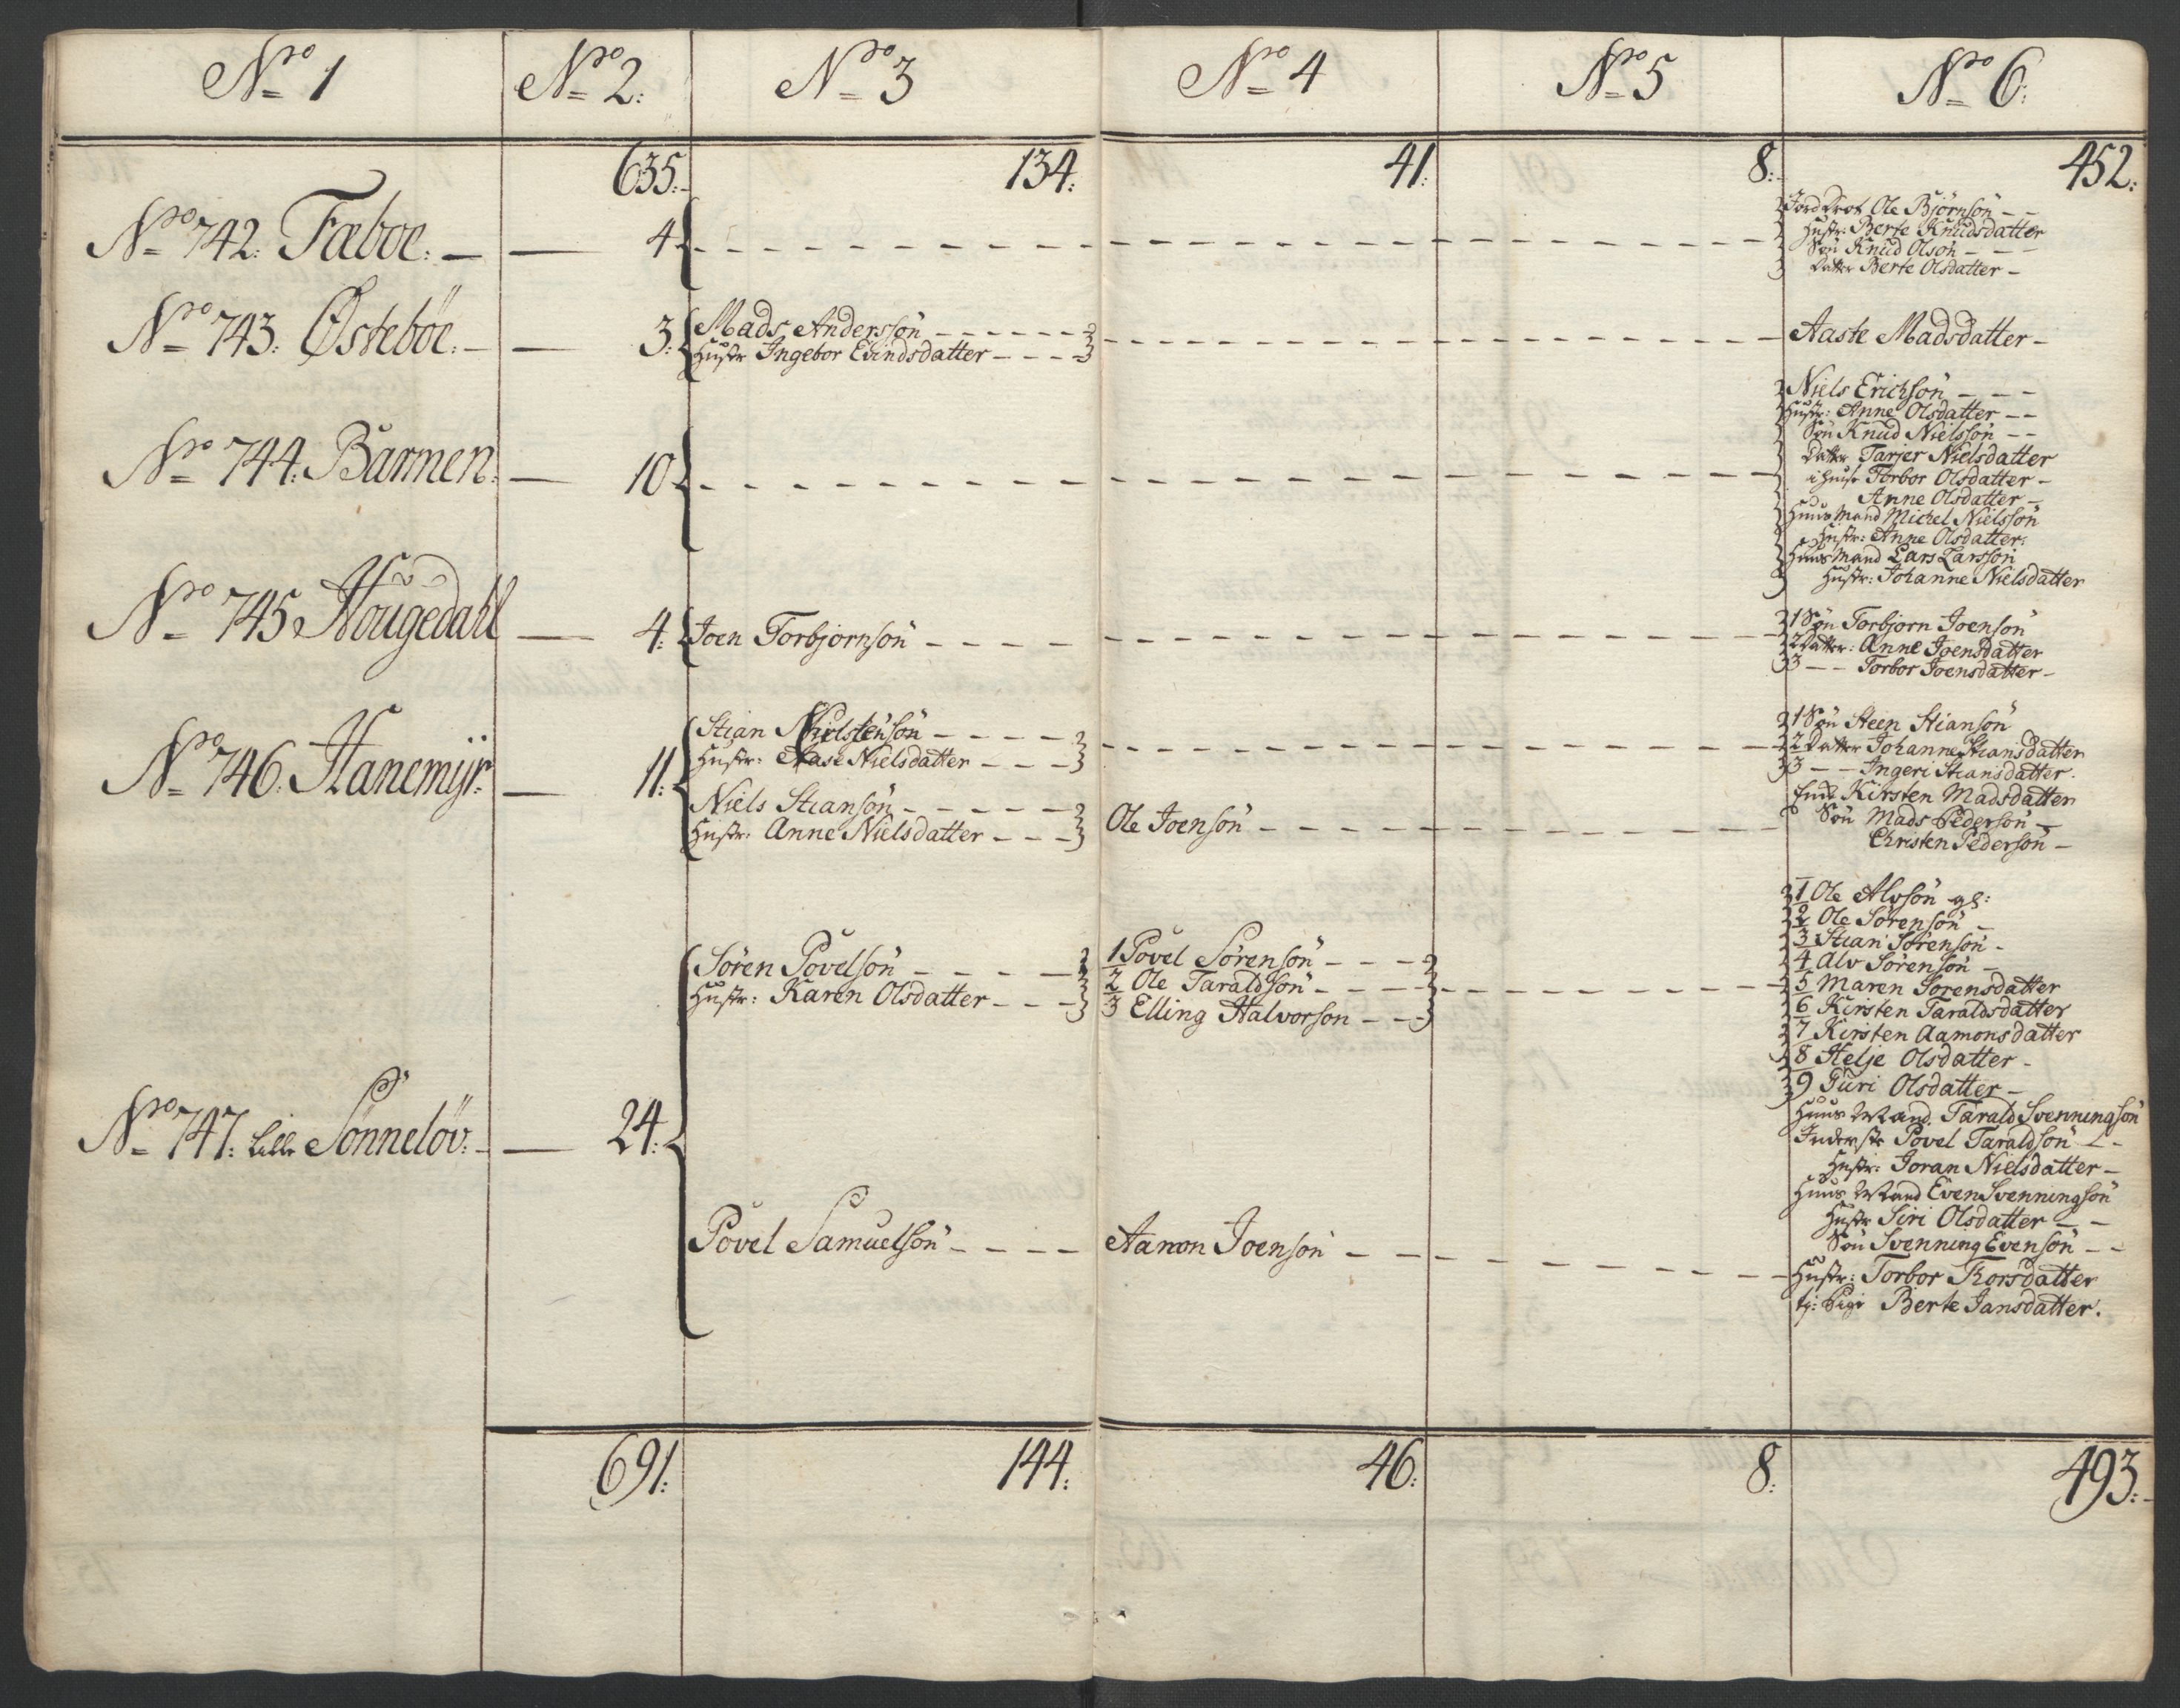 No 1 No 2: No 3 No 4 No 5 No 6:
635. 134. 41. 8. 452.
No 742: Fæboe. 4
Jorddrot Ole Biörnsön
Hustr: Berte Knudsdatter
Sön Knud Olsön
Datter Berte Olsdatter
No 743: Östeböe. 3.
Mads Anderssön
Hustr Ingebor Evindsdatter
Aaste Madsdatter
No 744: Barmen. 10
Niels Erichsön
Hustr: Anne Olsdatter
Sön Knud Nielssön
Datter Tarjer Nielsdatter
i huuse Torbor Olsdatter
Anne Olsdatter
Huus Mand Michel Nielssön
Hustr: Anne Olsdatter:
Huus Mand Lars Larssön
Hustr: Johanne Nielsdatter
No 745 Hougedahl 4.
Joen Torbjornsön
1 Sön Torbjorn Joensön
2 Datter: Anne Joensdatter
3 Torbor Joensdatter
No 746. Hanemÿr. 11.
Stian Kielstensön
Hustr: Aase Nielsdatter
Niels Stiansön
Hustr: Anne Nielsdatter
Ole Joensön
1 Sön Steen Stiansön
2 Datter Johanne Stiansdatter
3 Ingeri Stiansdatter.
Kirsten Madsdatter
Sön Mads Pedersön
Christen Pedersön
No 747. Lille Sönnelöv. 24.
Sören Povelsön
Hustr: Karen Olsdatter
Povel Samuelsön
1 Povel Sörensön
2 Ole Taraldsön
3 Elling Halvorsön
Aamon Joensön
1 Ole Alvsön gl:
2 Ole Sörensön
3 Stian Sörensön
4 Alv Sörensön
5 Maren Sorensdatter
6 Kirsten Taraldsdatter
7 Kirsten Aamonsdatter
8 Helje Olsdatter
9 Guri Olsdatter
Huus Mand. Tarald Svenningsön
Inderste Povel Taraldsön
Hustr: Joran Nielsdatter
Huus Mand Even Svenningsön
Hustr Siri Olsdatter
Sön Svenning Evensön
Hustr: Torbor Torsdatter
tj: Pige Berte Jansdatter.
691. 144. 46. 8. 493.